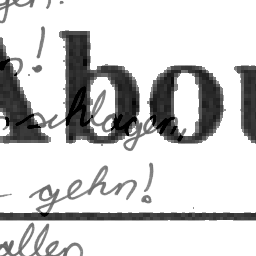 gen!
n!
Abou
schlagen,
- gehn!
allen